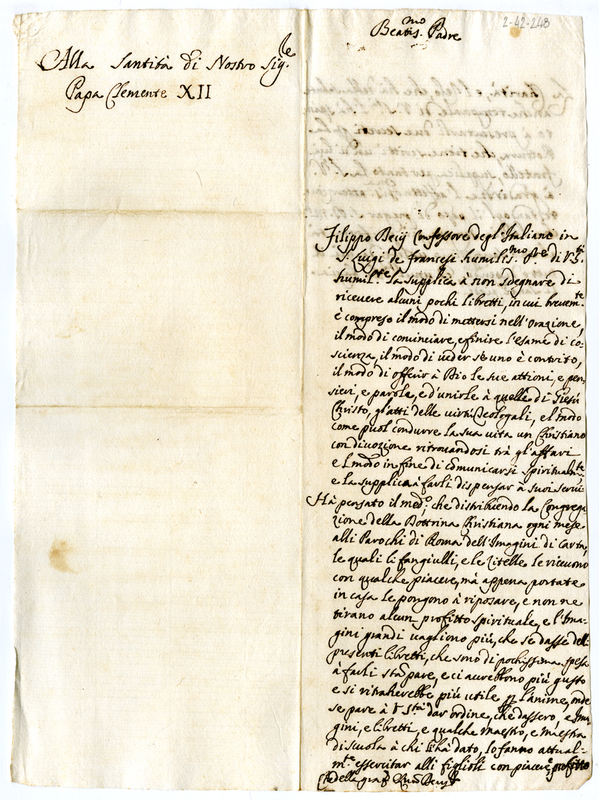 2-42-248
Alla Santità di Nostro Sig.le
Papa Clemente XII
Beatis.mo Padre
Filippo Becij Confessore degl'Italiani in
S. Luigi de francesi humilis.mo di
humil.te la supplica à non sdegnare di
riceuere alcuni pochi libretti, in cui breuem.te
è compreso il modo di mettersi nell'orazione,
il modo di cominciare, e finire l'esame di co-
scienza, il modo di ueder se uno è contrito,
il modo di offerir à Dio le sue attioni, e pen
sieri, e parole, e d'unirle à quelle di Giesù
Christo, gl'atti delle uirtù Teologali, e l modo
come puol condurre la sua uita un Christiano
con diuozione ritrouandosi trà gl'affari
e l modo in fine di comunicarsi spiritualm.te
e la supplica à farli dispensar à suoi serui
Hà pensato il med.o, che distribuendo la Congrega
zione della Dottrina Christiana ogni mese
alli Parochi di Roma dell'Imagini di Carta,
le quali li fangiulli, e le Zitelle le riceuono
con qualche piacere, mà appena portate
in casa le pongono à riposare, e non ne
tirano alcun profitto spirituale, e l'Ima-
gini grandi uagliono più, che se dasse dell
presenti libretti, che sono di pochissima spesa
à farli stãpare, e ci aurebbono più gusto
e si ritraherebbe più utile l'anime, onde
se pare à V S.tà dar ordine, che dassero, e Ima
gini, e libretti, e qualche maestro, e maestra
di scuola à chi l'hà dato, lo fanno attual-
m.te essercitar alli figlioli con piacere, e profitto
Che della graz